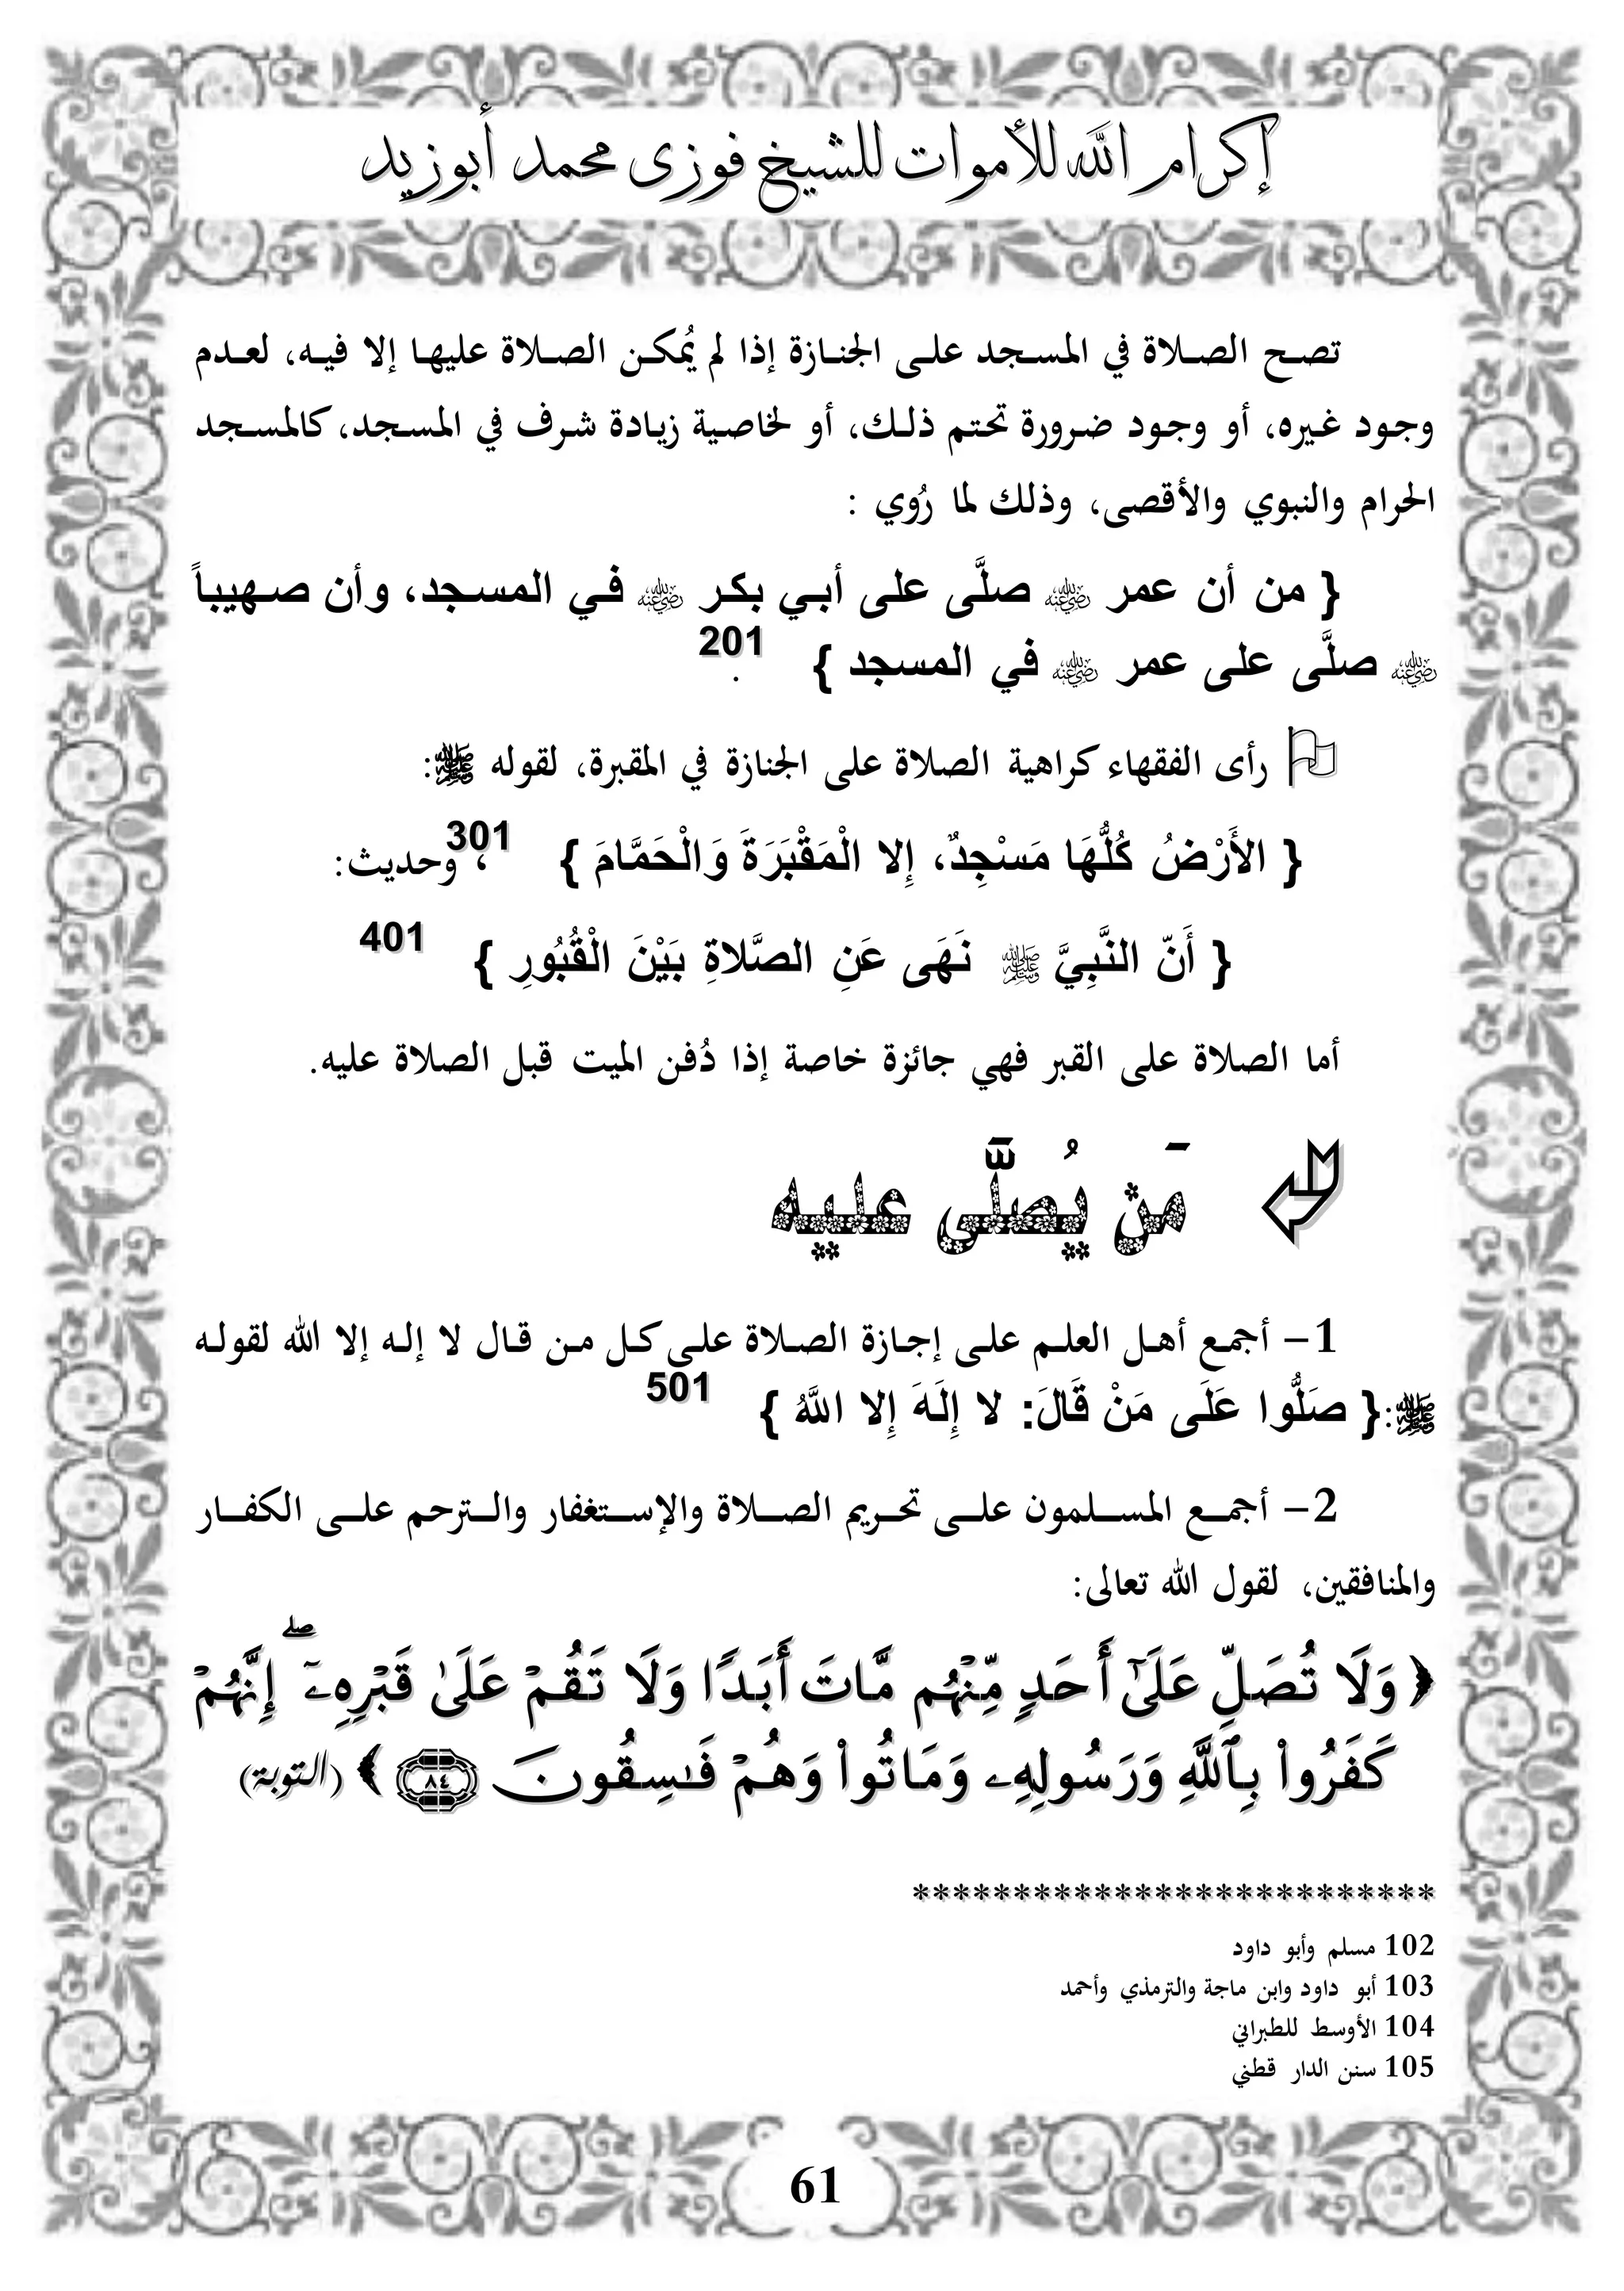 إكرام الله للأموات للشيخ فوزى محمد أبوزيد
تصح الصلاة في المسجد على الجنازة إذا لم يُمكن الصلاة عليها إلا فيه، لعدم
وجود غيره، أو وجود ضرورة تحتم ذلك، أو لخاصية زيادة شرف في المسجد، كالمسجد
الحرام والنبوي والأقصى، وذلك لما رُوي :
{ من أن عمر ﵁ صلَّى على أبي بكر ﵁ في المسجد، وأن صهيباً
﵁ صلَّى على عمر ﵁ في المسجد } 201 .
رأى الفقهاء كراهية الصلاة على الجنازة في المقبرة، لقوله ﷺ:
{ الأَرْضُ كُلُّهَا مَسْجِدٌ، إِلا الْمَقْبَرَةَ وَالْحَمَّامَ } 301 ، وحديث:
{ أَنّ النَّبِيَّ ﷺ نَهَى عَنِ الصَّلاةِ بَيْنَ الْقُبُورِ } 401
أما الصلاة على القبر فهي جائزة خاصة إذا دُفن الميت قبل الصلاة عليه.
مَنْ يُصلَّى عليه
1- أجمع أهل العلم على إجازة الصلاة على كل من قال لا إله إلا الله لقوله
ﷺ:{ صَلُّوا عَلَى مَنْ قَالَ: لا إِلَهَ إِلا اللَّهُ } 501
2- أجمع المسلمون على تحريم الصلاة والإستغفار والترحم على الكفار
والمنافقين، لقول الله تعالى:
﴿ وَلَا تُصَلِّ عَلَىٰٓ أَحَدٍ مِّنْهُم مَّاتَ أَبَدًا وَلَا تَقُمْ عَلَىٰ قَبْرِهِۦٓ ۖ إِنَّهُمْ
كَفَرُوا۟ بِٱللَّهِ وَرَسُولِهِۦ وَمَاتُوا۟ وَهُمْ فَـٰسِقُونَ ﴿٨٤﴾ ﴾ (التوبة)
**************************
102 مسلم وأبو داود
103 أبو داود وابن ماجة والترمذي وأحمد
104 الأوسط للطبراني
105 سنن الدار قطني
61